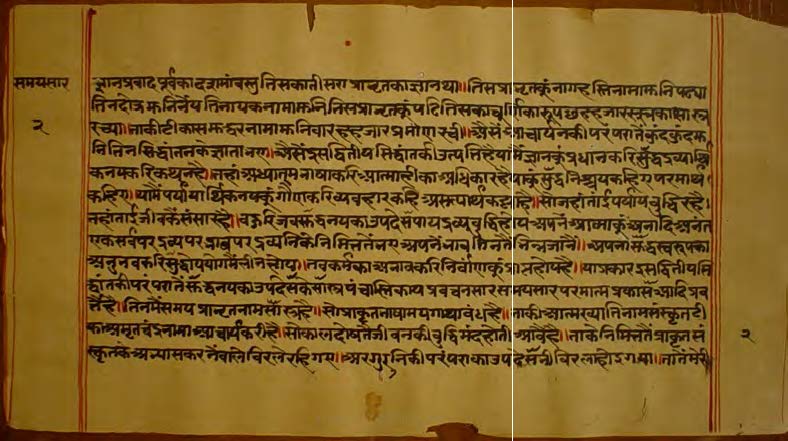 समयसार
२
ज्ञानप्रवाद पूर्वका दशमां वस्तु तिसका तीसरा प्राभृतका ज्ञान था॥ तिस प्राभृतकूं नागहस्ति नामा मुनि पढ्या
तिनि दोऊ मुनिनैं यतिनायक नामा मुनि तिस प्राभृतकूं पढि तिसका चूर्णिका रूप छह हजार सूत्रका शास्त्र
रच्या॥ ताकी टीका समुद्धर नामा मुनि बारह हजार प्रमाण रची॥ ऐसैं आचार्यनकी परंपरातैं कुंदकुंद मु
नि तिनि सिद्धांतनके ज्ञाता भए॥ ऐसैं इस द्वितीय सिद्धांतकी उत्पत्ति है यामैं ज्ञानकूं प्रधान करि सुद्ध द्रव्यार्थि
क नयकरि कथन है॥ तहां अध्यात्म भाषाकरि आत्माहीका अधिकार है याकूं सुद्ध निश्चय कहिए परमार्थ
कहिए॥ यामैं पर्यायार्थिक नयकूं गौण करि व्यवहार कहि असत्यार्थ कह्या है॥ सो जहां ताईं पर्याय बुद्धि रहै॥
तहां ताईं जीवकै संसार है॥ बहुरि जब सुद्ध नयका उपदेस पाय द्रव्य बुद्धि होय अपनैं आत्माकूं अनादि अनंत
एक सर्व परद्रव्य परभाव परद्रव्यनिके निमित्ततैं भए अपनैं भाव तिनतैं भिन्न जानैं॥ अपना सुद्ध स्वरूपका
अनुभव करि सुद्धोपयोगमैं लीन होय॥ तब कर्मका अभाव करि निर्वाणकूं प्राप्त होय है॥ या प्रकार इस द्वितीय सि
द्धांतकी परंपरातैं सुद्ध नयका उपदेसके सास्त्र पंचास्तिकाय प्रवचनसार समयसार परमात्मप्रकास आदि प्रव
र्त्तै है॥ तिनमैं समय प्राभृत नाम सास्त्र है॥ सो प्राकृत भाषामय गाथा बंध है॥ ताकी आत्मख्याति नाम संस्कृत टी
का अमृतचंद्र नामा आचार्य करी है॥ सो काल दोषतैं जीवनकी बुद्धि मंद होती आवै है॥ ताके निमित्ततैं प्राकृत सं
स्कृतके अभ्यास करनेंवाले विरले रहि गए॥ अर गुरुनिकी परंपराका उपदेस भी विरला होइ गया॥ तातैं मेरी
२